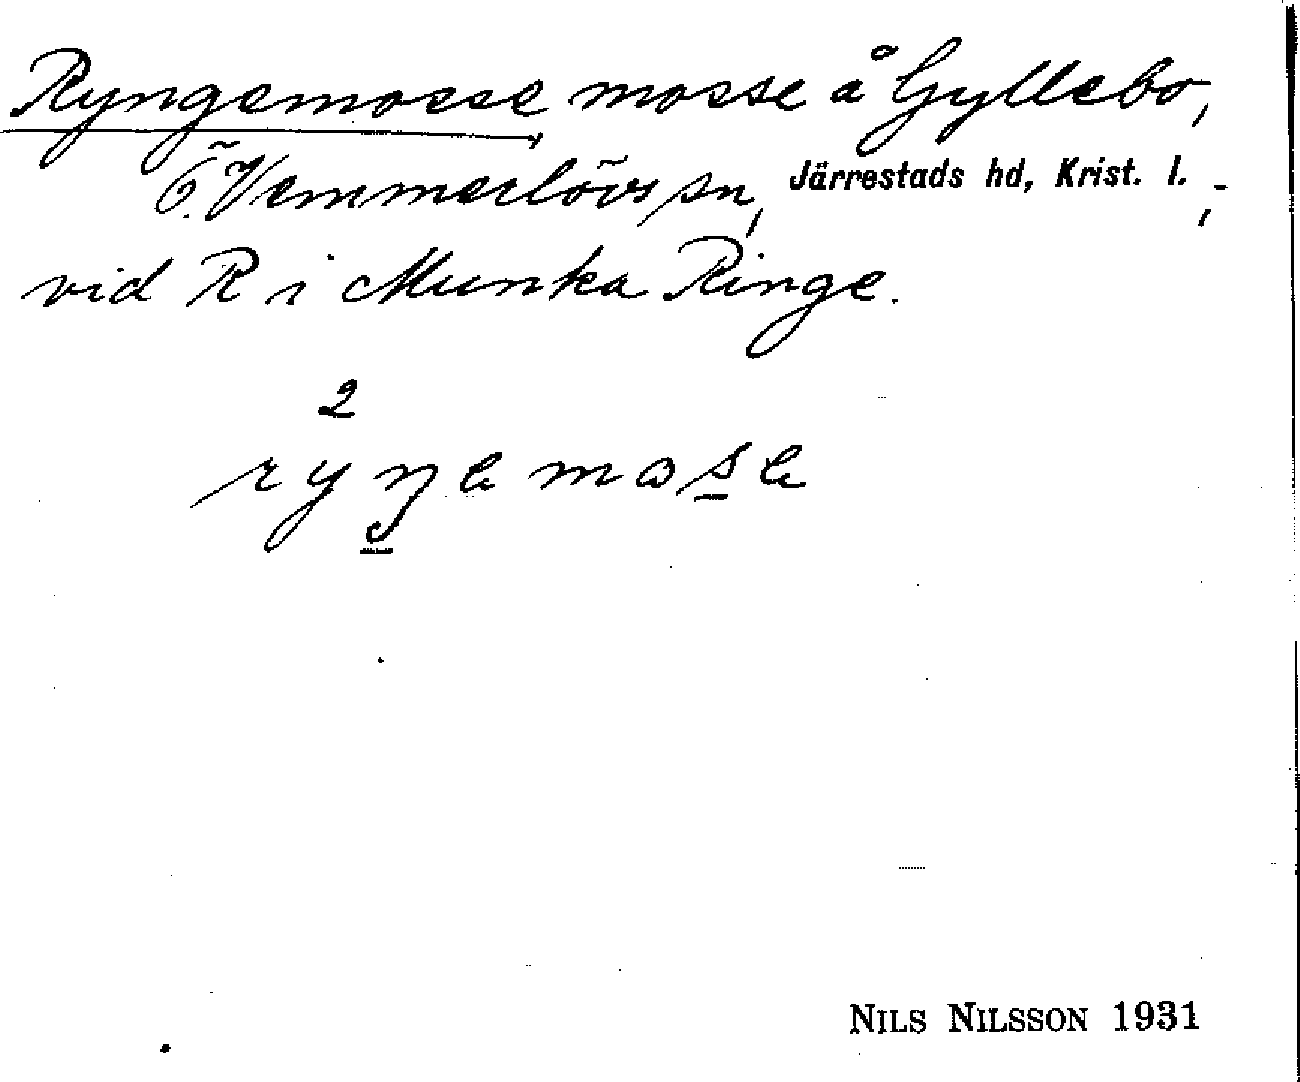 Ryngemosse mosse å Gyllebo,
Ö. Vemmerlövs sn, Järrestads hd, Krist. l. ;
vid R i Munka Ringe.
2
ryŋemose
NILS NILSSON 1931